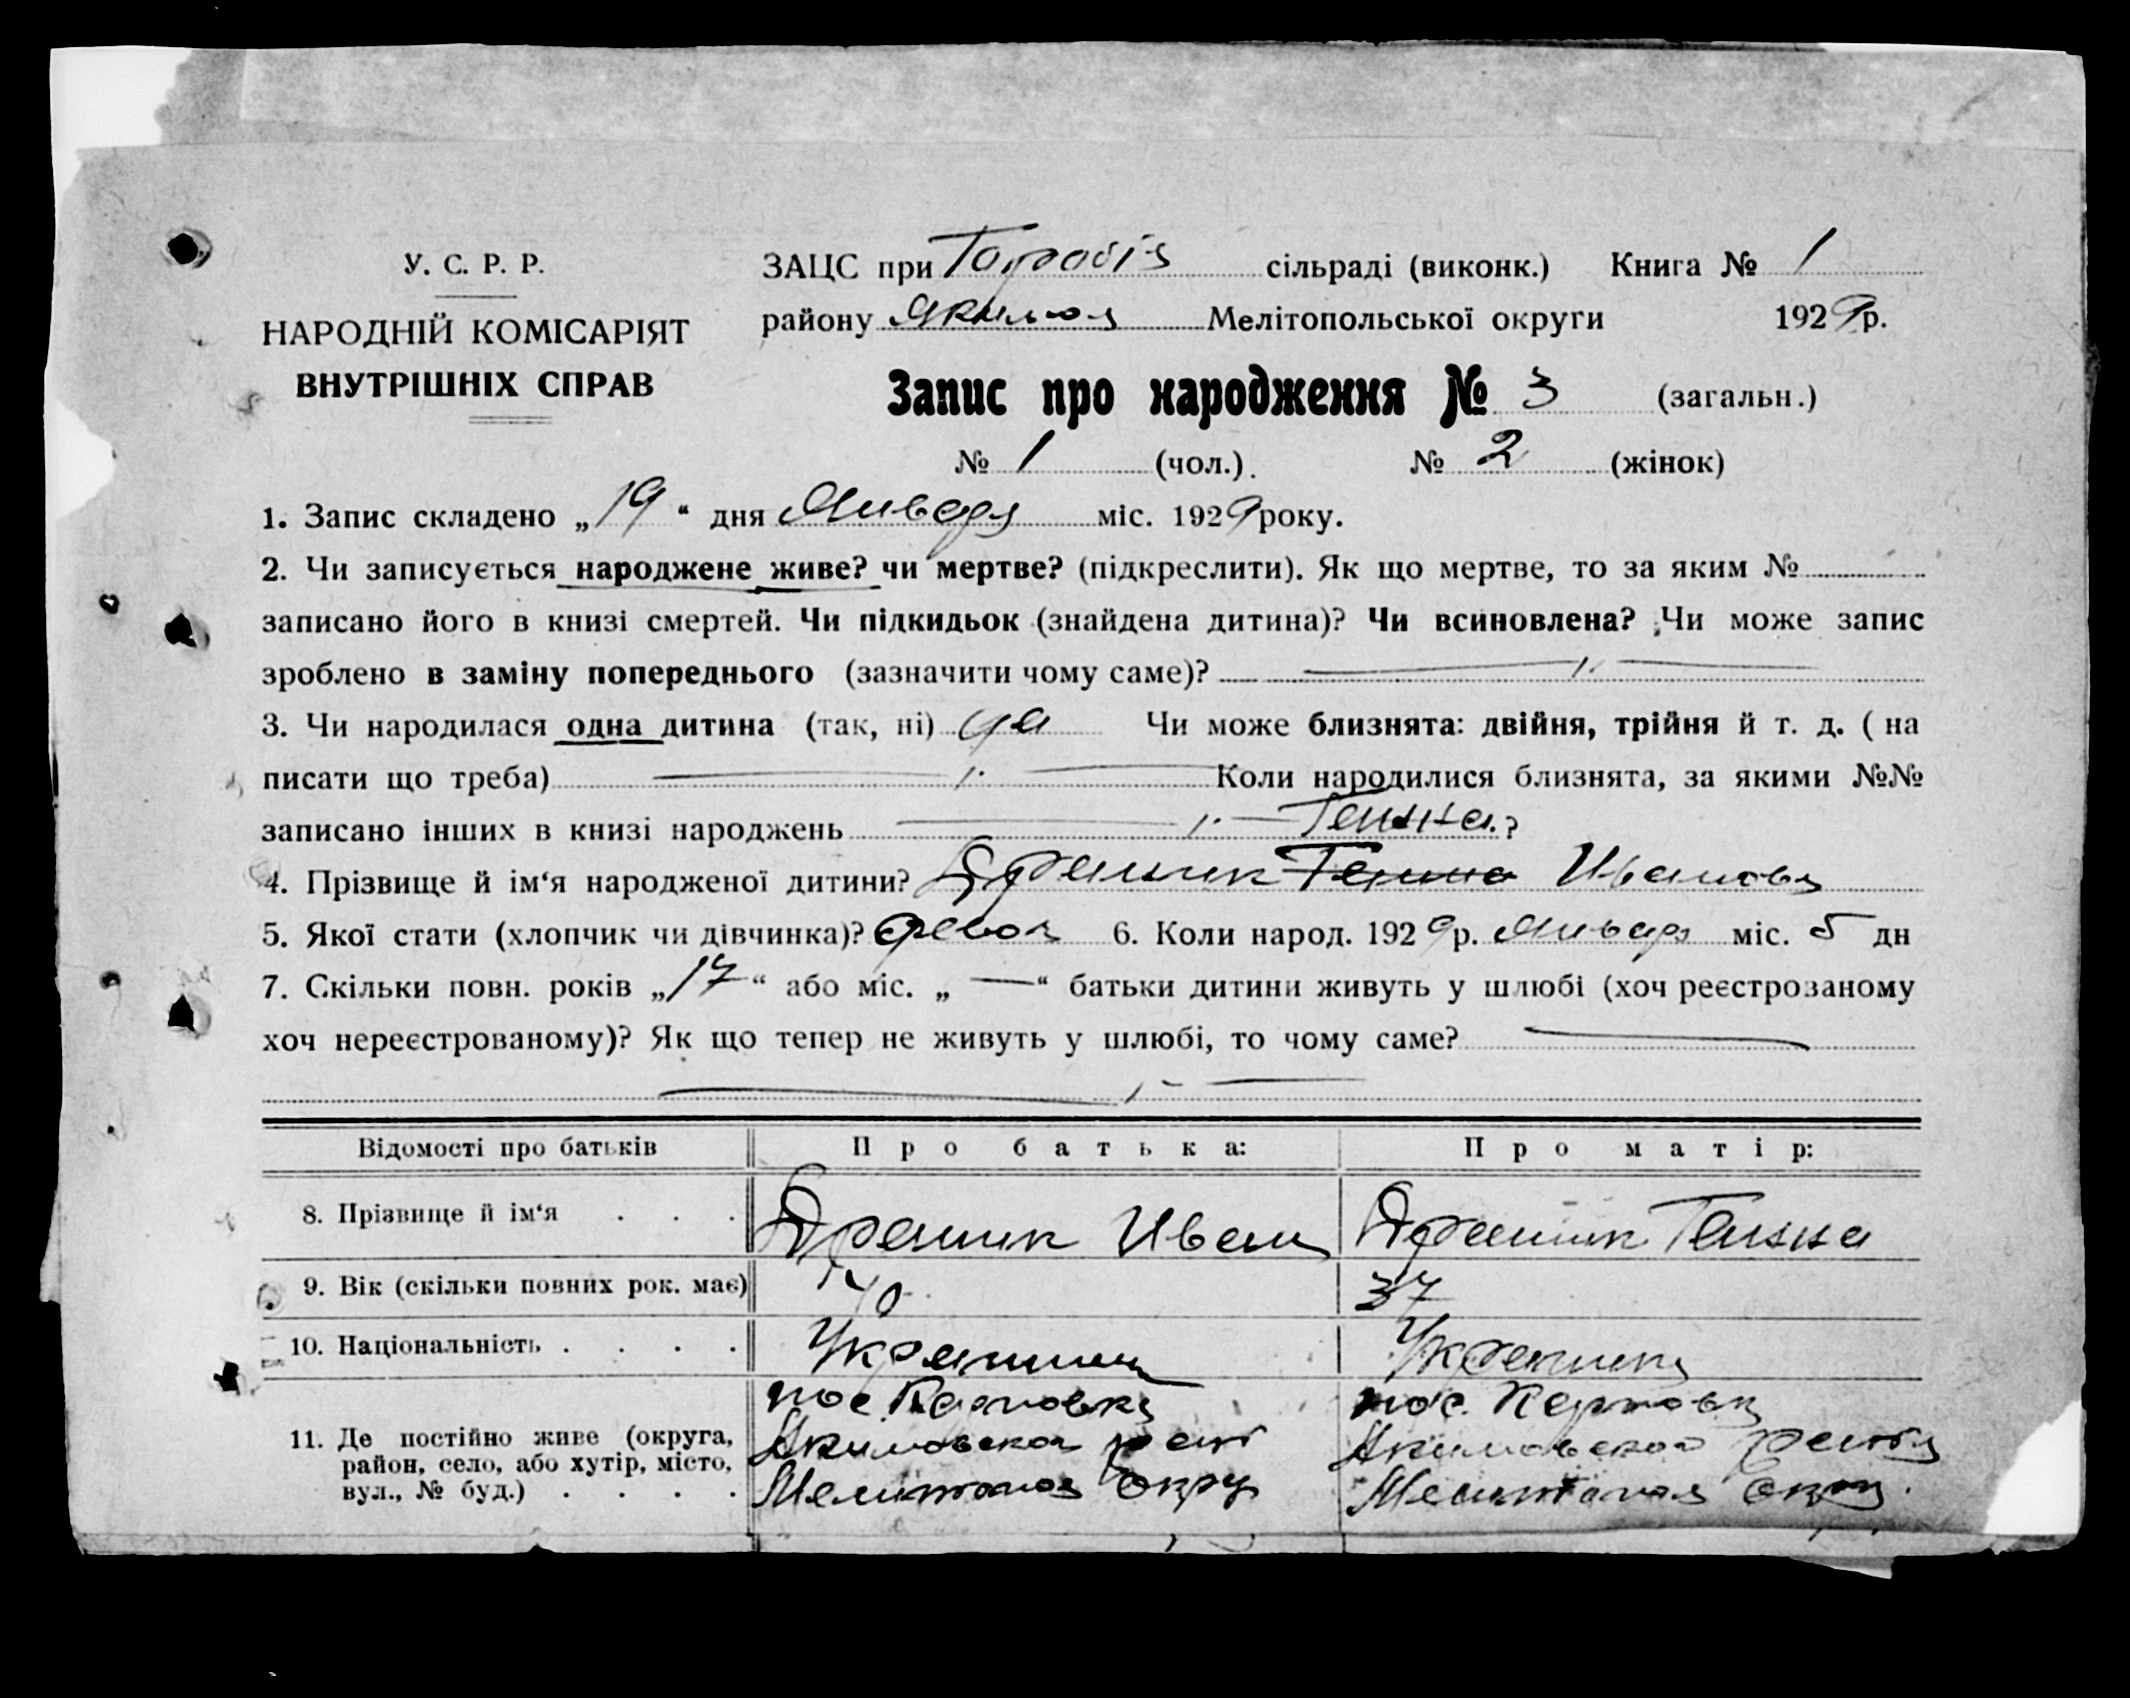 У. С. Р. Р.
НАРОДНІЙ КОМІСАРІЯТ
ВНУТРІШНІХ СПРАВ
ЗАЦС при сільраді (виконк.) Книга № 1
району Мелітопольської округи 1929 р.
Запис про народження № 3 (загальн.)
№ 1 (чол.). № 2 (жінок)
1. Запис складено „19“ дня Января міс. 1929 року.
2. Чи записується народжене живе? чи мертве? (підкреслити). Як що мертве, то за яким №
записано його в книзі смертей. Чи підкидьок (знайдена дитина)? Чи всиновлена? Чи може запис
зроблено в заміну попереднього (зазначити чому саме)?
3. Чи народилася одна дитина (так, ні) да Чи може близнята: двійня, трійня й т. д. ( на
писати що треба) Коли народилися близнята, за якими №№
записано інших в книзі народжень ?
4. Прізвище й ім‘я народженої дитини? Иванова
5. Якої стати (хлопчик чи дівчинка)? 6. Коли народ. 1929 р. Января міс. 5 дн
7. Скільки повн. років „17“ або міс. „ — “ батьки дитини живуть у шлюбі (хоч реєстрованому
хоч нереєстрованому)? Як що тепер не живуть у шлюбі, то чому саме?
Відомості про батьків Про батька: Про матір:
8. Прізвище й ім‘я . . . Иван
9. Вік (скільки повних рок. має) 40 37
10. Національність . . . . Украинец Украинка
11. Де постійно живе (округа,
район, село, або хутір, місто,
вул., № буд.) . . . .
пос. Карповка
Акимовского
Мелитопол Окру
пос. Карповка
Акимовского
Мелитопол Окру